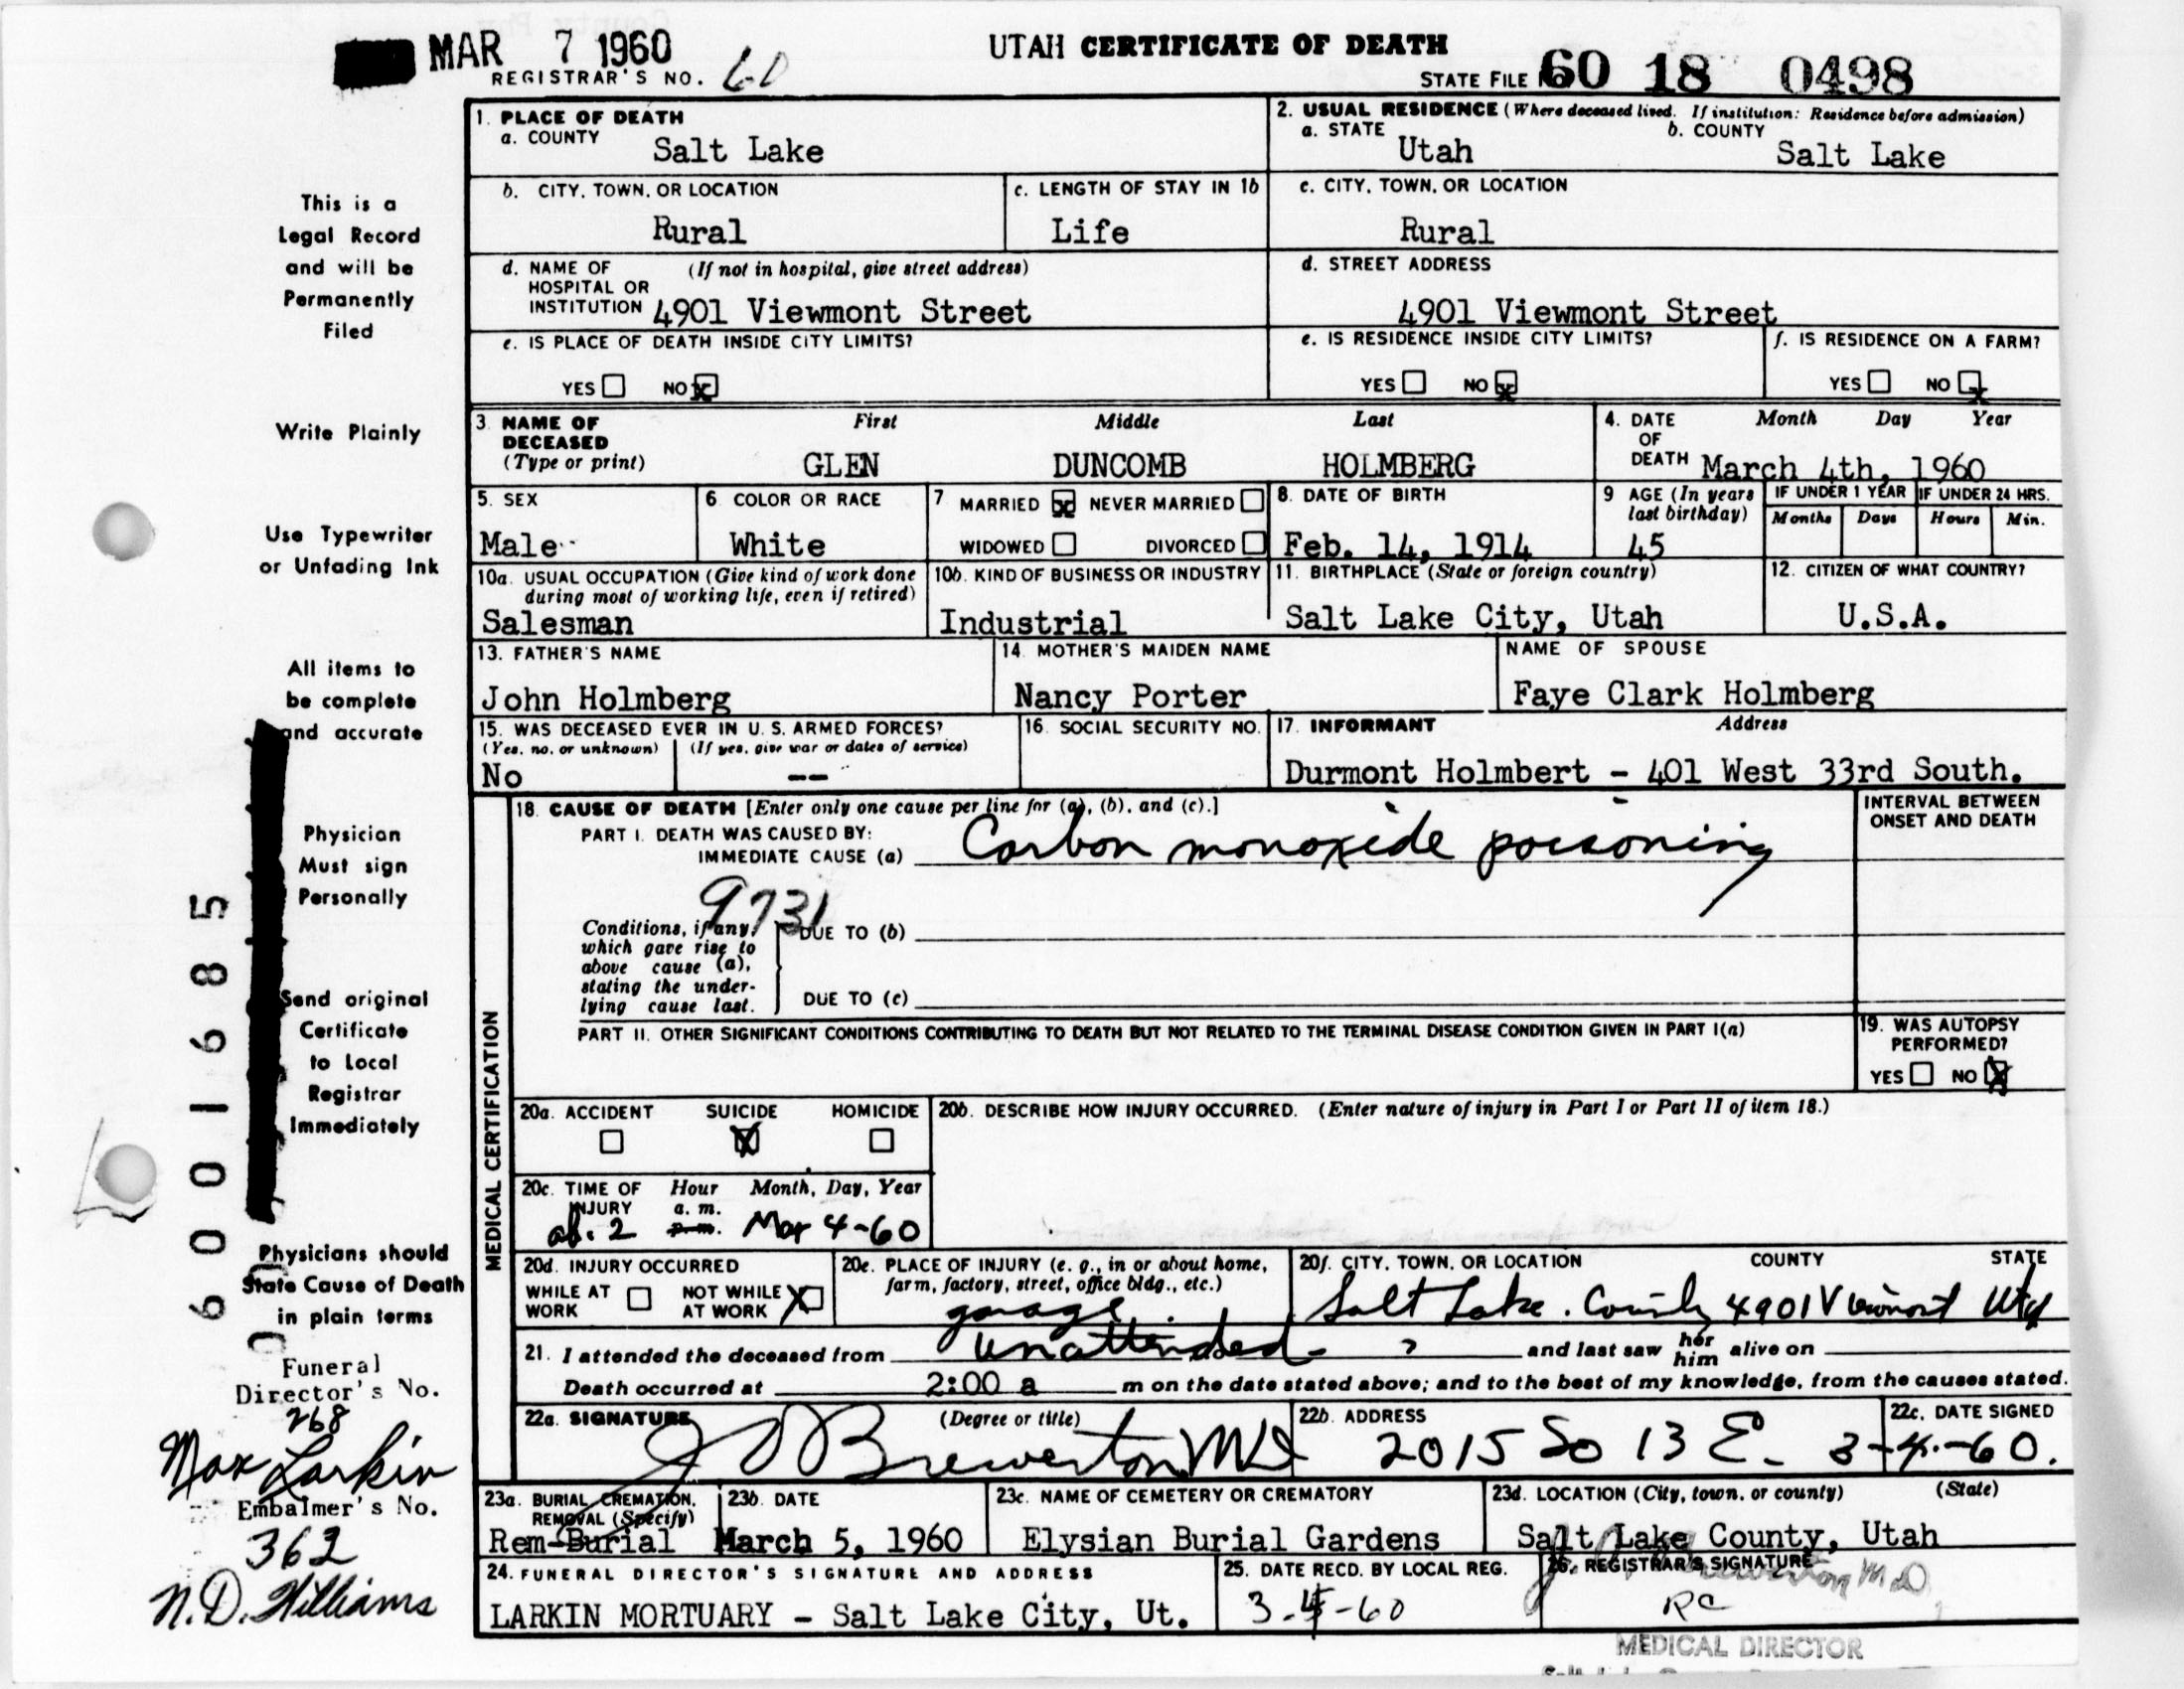 MAR 7 1960
UTAH CERTIFICATE OF DEATH
REGISTRAR'S NO. 60
STATE FILE No. 60 18 0498
1. PLACE OF DEATH
a. COUNTY Salt Lake
2. USUAL RESIDENCE (Where deceased lived. If institution: Residence before admission)
a. STATE Utah b. COUNTY Salt Lake
b. CITY, TOWN, OR LOCATION Rural
c. LENGTH OF STAY IN 1b Life
c. CITY, TOWN, OR LOCATION Rural
d. NAME OF HOSPITAL OR INSTITUTION (If not in hospital, give street address) 4901 Viewmont Street
d. STREET ADDRESS 4901 Viewmont Street
e. IS PLACE OF DEATH INSIDE CITY LIMITS?
YES NO x
e. IS RESIDENCE INSIDE CITY LIMITS?
YES NO x
f. IS RESIDENCE ON A FARM?
YES NO x
3. NAME OF DECEASED (Type or print)
First Middle Last
GLEN DUNCOMB HOLMBERG
4. DATE OF DEATH Month Day Year
March 4th, 1960
5. SEX Male
6. COLOR OR RACE White
7. MARRIED x NEVER MARRIED
WIDOWED DIVORCED
8. DATE OF BIRTH Feb. 14, 1914
9. AGE (In years last birthday) 45
IF UNDER 1 YEAR Months Days
IF UNDER 24 HRS. Hours Min.
10a. USUAL OCCUPATION (Give kind of work done during most of working life, even if retired)
Salesman
10b. KIND OF BUSINESS OR INDUSTRY
Industrial
11. BIRTHPLACE (State or foreign country)
Salt Lake City, Utah
12. CITIZEN OF WHAT COUNTRY?
U.S.A.
13. FATHER'S NAME
John Holmberg
14. MOTHER'S MAIDEN NAME
Nancy Porter
NAME OF SPOUSE
Faye Clark Holmberg
15. WAS DECEASED EVER IN U. S. ARMED FORCES?
(Yes, no, or unknown) (If yes, give war or dates of service)
No --
16. SOCIAL SECURITY NO.
17. INFORMANT Address
Durmont Holmbert - 401 West 33rd South.
MEDICAL CERTIFICATION
18. CAUSE OF DEATH [Enter only one cause per line for (a), (b), and (c).]
PART I. DEATH WAS CAUSED BY:
IMMEDIATE CAUSE (a) Carbon monoxide poisoning
INTERVAL BETWEEN ONSET AND DEATH
9731
Conditions, if any, which gave rise to above cause (a), stating the underlying cause last.
DUE TO (b)
DUE TO (c)
PART II. OTHER SIGNIFICANT CONDITIONS CONTRIBUTING TO DEATH BUT NOT RELATED TO THE TERMINAL DISEASE CONDITION GIVEN IN PART I(a)
19. WAS AUTOPSY PERFORMED?
YES NO X
20a. ACCIDENT SUICIDE HOMICIDE
X
20b. DESCRIBE HOW INJURY OCCURRED. (Enter nature of injury in Part I or Part II of item 18.)
20c. TIME OF INJURY Hour Month, Day, Year
a. m.
p. m.
ab. 2 Mar 4-60
20d. INJURY OCCURRED
WHILE AT WORK NOT WHILE AT WORK X
20e. PLACE OF INJURY (e. g., in or about home, farm, factory, street, office bldg., etc.)
garage
20f. CITY, TOWN, OR LOCATION COUNTY STATE
Salt Lake. County 4901 Viewmont Utah
21. I attended the deceased from unattended , and last saw her him alive on
Death occurred at 2:00 a m on the date stated above; and to the best of my knowledge, from the causes stated.
22a. SIGNATURE (Degree or title)
J Brewerton MD
22b. ADDRESS
2015 So 13 E.
22c. DATE SIGNED
3-4-60.
23a. BURIAL, CREMATION, REMOVAL (Specify)
Rem-Burial
23b. DATE
March 5, 1960
23c. NAME OF CEMETERY OR CREMATORY
Elysian Burial Gardens
23d. LOCATION (City, town, or county) (State)
Salt Lake County, Utah
24. FUNERAL DIRECTOR'S SIGNATURE AND ADDRESS
LARKIN MORTUARY - Salt Lake City, Ut.
25. DATE RECD. BY LOCAL REG.
26. REGISTRAR'S SIGNATURE
RC
MEDICAL DIRECTOR
This is a
Legal Record
and will be
Permanently
Filed
Write Plainly
Use Typewriter
or Unfading Ink
All items to
be complete
and accurate
Physician
Must sign
Personally
Send original
Certificate
to Local
Registrar
Immediately
Physicians should
State Cause of Death
in plain terms
6001685
Funeral
Director's No.
268
Max Larkin
Embalmer's No.
362
N.D. Williams